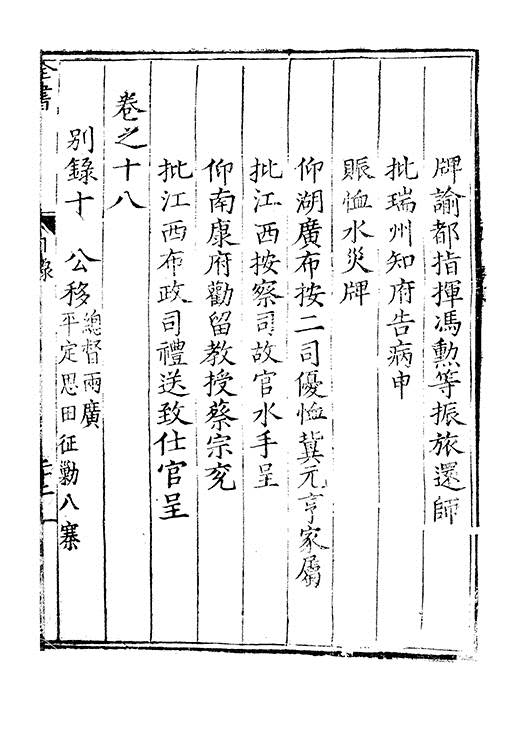 牌諭都指揮馮勲等振旅還師
批瑞州知府告病申
賑恤水災牌
仰湖廣布按二司優恤冀元亨家屬
批江西按察司故官水手呈
仰南康府勸留教授蔡宗兖
批江西布政司禮送致仕官呈
卷之十八
別錄十　公移總督兩廣平定思田征勦八寨
全書
目錄